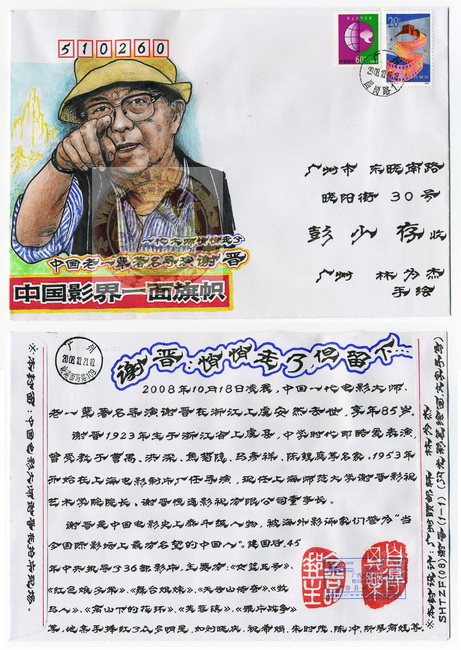 510260
20分
60分
广州
2008.10.
广州市 东晓南路
晓阳街 30号
彭少存 收
广州 林为杰
手绘
一代大师悄悄走了
中国老一辈著名导演谢晋
中国影界一面旗帜
广州
2008.10.21.
谢晋:悄悄走了,但留下…
2008年10月18日凌晨,中国一代电影大师、
老一辈著名导演谢晋在浙江上虞安然去世,享年85岁。
谢晋1923年生于浙江省上虞县,中学时代即酷爱表演,
曾受教于曹禺、洪深、焦菊隐、马彦祥、陈鲤庭等名家。1953年
开始在上海电影制片厂任导演,现任上海师范大学谢晋影视
艺术学院院长、谢晋恒通影视有限公司董事长。
谢晋是中国电影史上泰斗级人物,被海外影评家们誉为“当
今国际影坛上最有名望的中国人”。建国后45
年中共执导了36部影片,主要有:《女篮五号》、
《红色娘子军》、《舞台姐妹》、《天云山传奇》、《牧
马人》、《高山下的花环》、《芙蓉镇》、《鸦片战争》
等,他亲手捧红了众多明星,如刘晓庆、祝希娟、朱时茂、陈冲、斯琴高娃等。
※本封图:中国电影大师谢晋在拍片现场。
※本封设计:广州 林为杰
SHTZF(08)谢晋(1-1)